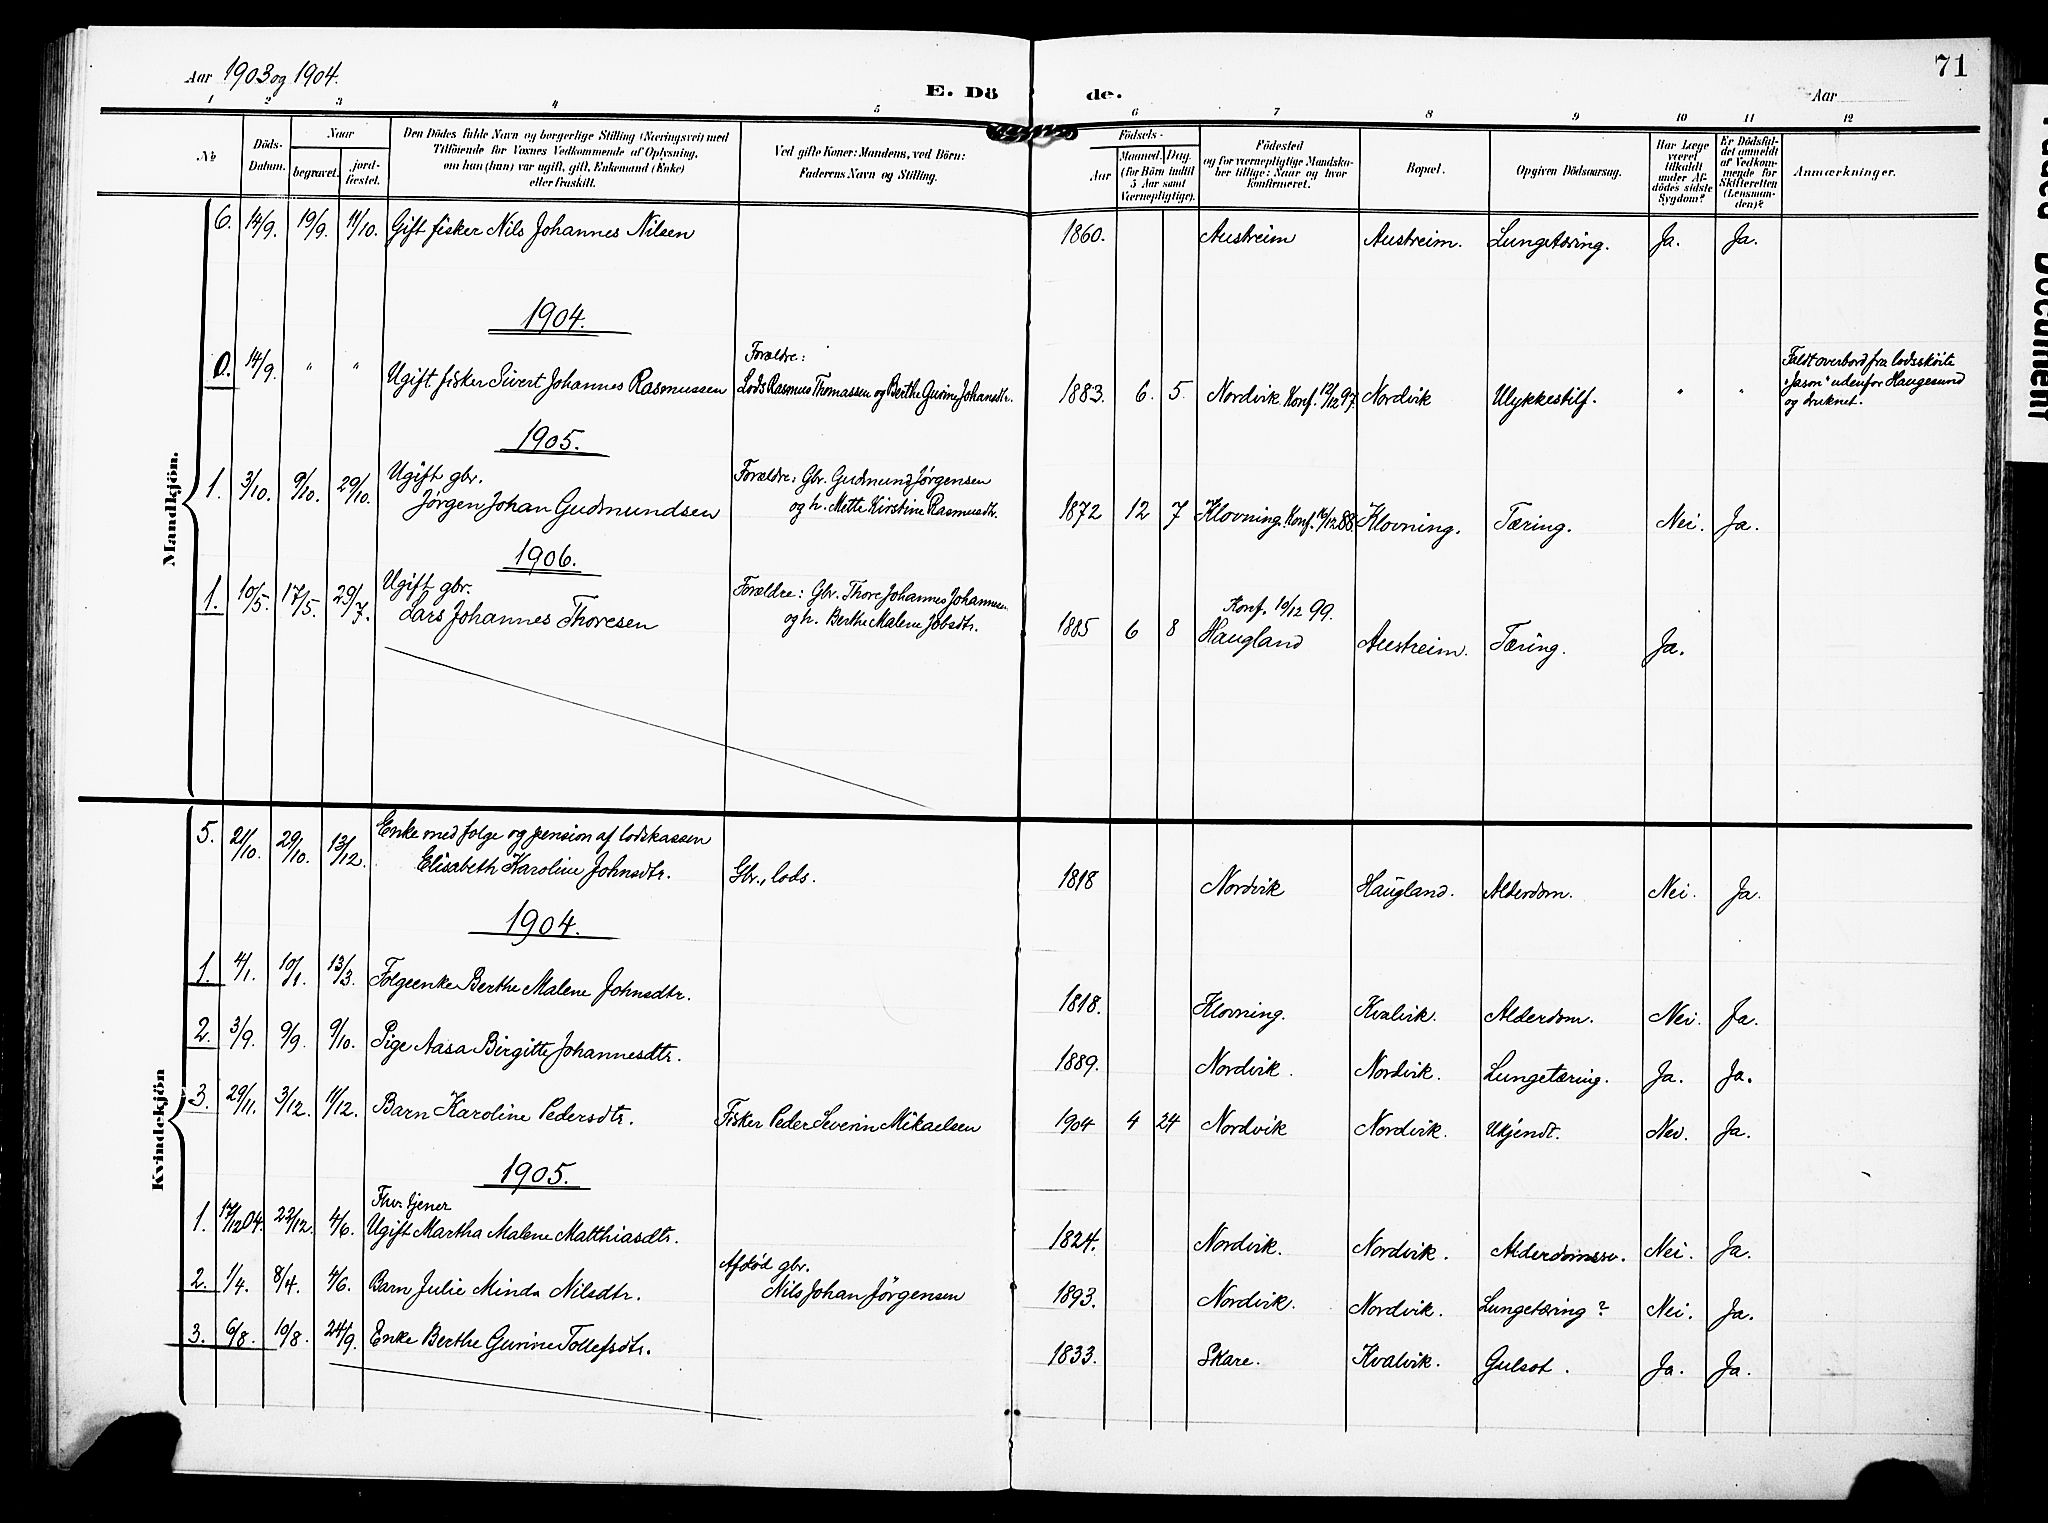 Aar 1903 og 1904.
E. Dö de.
Aar
71
1 2 3 4 5 6 7 8 9 10 11 12
No
Döds-Datum.
Naar
begravet.
jordfæstet.
Den Dödes fulde Navn og borgerlige Stilling (Næringsvei) med
Tilföiende for Voxnes Vedkommende af Oplysning,
om han (hun) var ugift, gift, Enkemand (Enke)
eller fraskilt.
Ved gifte Koner: Mandens, ved Börn:
Faderens Navn og Stilling.
Födsels-
Aar
Maaned. Dag.
(for Börn indtil
5 Aar samt
Værnepligtige).
Födested
og for værnepligtige Mandska-
ber tillige: Naar og hvor
konfirmeret.
Bopæl.
Opgiven Dödsaarsag.
Har Læge
været
tilkaldt
under Af-
dödes sidste
Sygdom?
Er Dödsfal-
det anmeldt
af Vedkom-
mende for
Skifteretten
(Lensman-
den)?
Anmærkninger.
Mandkjön.
6. 14/9. 19/9. 11/10. Gift fisker Nils Johannes Nilsen 1860. Austreim Austreim. Lungetæring. Ja. Ja.
1904.
0. 14/9. " " Ugift fisker Sivert Johannes Rasmussen Forældre: Lods Rasmus Thomassen og Berthe Gurine Johansdtr. 1883. 6. 5. Nordvik Konf. 12/12 97. Nordvik Ulykkestilf. " " Faldt overbord fra lodsskøite "Jason" udenfor Haugesund og druknet.
1905.
1. 3/10. 9/10. 29/10. Ugift gbr. Jørgen Johan Gudmundsen Forældre: Gbr. Gudmund Jørgensen og h. Mette Kirstine Rasmusdtr. 1872 12 7 Klovning. Konf. 16/12 88. Klovning. Tæring. Nei. Ja.
1906.
1. 10/5. 17/5. 29/7. Ugift gbr. Lars Johannes Thoresen Forældre: Gbr. Thore Johannes Johannesen og h. Berthe Malene Jobsdtr. 1885 6 8 Konf. 10/12 99. Haugland Austreim. Tæring. Ja.
Kvindekjön
5. 21/10. 29/10. 13/12. Enke med folge og pension af lodskassen Elisabeth Karoline Johnsdtr. Gbr., lods. 1818 Nordvik Haugland. Alderdom. Nei. Ja.
1904.
1. 4/1. 10/1. 13/3. Folgeenke Berthe Malene Johnsdtr. 1818. Klovning. Kvalvik. Alderdom. Nei. Ja.
2. 3/9. 9/9. 9/10. Pige Aasa Birgitte Johannesdtr. 1889. Nordvik. Nordvik. Lungetæring. Ja. Ja.
3. 29/11. 3/12. 11/12. Barn Karoline Pedersdtr. Fisker Peder Severin Mikaelsen 1904 4 24 Nordvik Nordvik. Ukjendt. Nei. Ja.
1905.
1. 17/12 04. 22/12. 4/6. Fhv. tjener Ugift Martha Malene Matthiasdtr. 1824. Nordvik. Nordvik. Alderdomssv. Nei. Ja.
2. 1/4. 8/4. 4/6. Barn Julie Minda Nilsdtr. Afdød gbr. Nils Johan Jörgensen 1893. Nordvik. Nordvik. Lungetæring? Nei. Ja.
3. 6/8. 10/8. 24/9. Enke Berthe Gurine Tollefsdtr. 1833. Skare. Kvalvik. Gulsot. Ja. Ja.